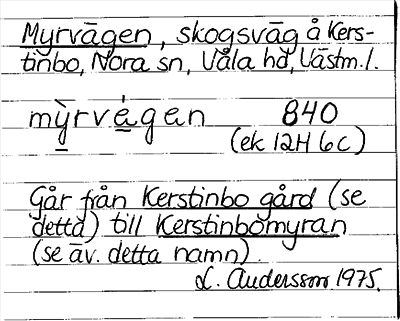 Myrvägen, skogsväg å Kers-
tinbo, Nora sn, Våla hd, Västm.l.
mỳrvágen 840
(ek 12H 6c)
Går från Kerstinbo gård (se
detta) till Kerstinbomyran
(se äv. detta namn).
L. Andersson 1975.